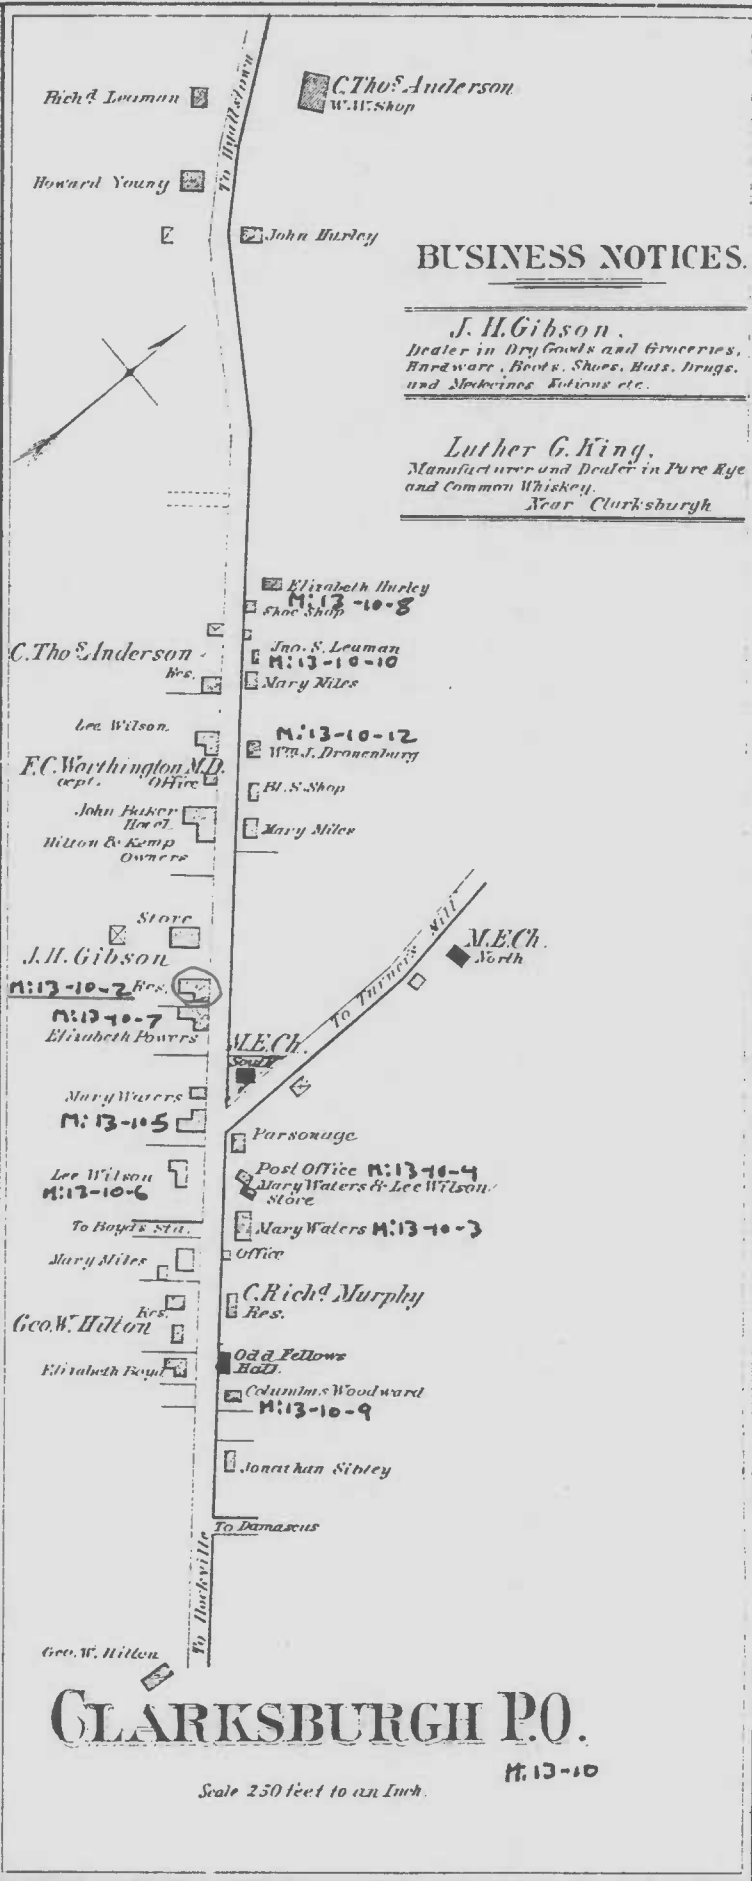 Rich.d Leaman
C. Tho.s Anderson
W.W. Shop
To Hyattstown
Howard Young
John Hurley
BUSINESS NOTICES.
J. H. Gibson.
Dealer in Dry Goods and Groceries,
Hardware, Boots, Shoes, Hats, Drugs,
and Medecines Notions etc.
Luther G. King,
Manufacturer and Dealer in Pure Rye
and Common Whiskey.
Near Clarksburgh
Elizabeth Hurley
M:13-10-8
Shoe Shop
C. Tho.s Anderson
Res.
Jno. S. Leaman
M:13-10-10
Mary Miles
Lee Wilson
M:13-10-12
Wm. J. Dronenburg
F.C. Worthington M.D.
Office
Bl. S. Shop
John Baker
Hotel
Hilton & Kemp
Owners
Mary Miles
Store
J. H. Gibson
M:13-10-2 Res.
M:13-10-7
Elizabeth Powers
To Turners Mill
M.E. Ch.
North
M.E. Ch.
South
Mary Waters
M:13-10-5
Parsonage
Lee Wilson
M:13-10-6
Post Office M:13-10-4
Mary Waters & Lee Wilson
Store
To Boyds Sta.
Mary Waters M:13-10-3
Mary Miles
Office
Res.
Geo. W. Hilton
C. Rich.d Murphy
Res.
Elizabeth Boyd
Odd Fellows
Hall.
Columbus Woodward
M:13-10-9
Jonathan Sibley
To Damascus
To Rockville
Geo. W. Hilton
CLARKSBURGH P.O.
M:13-10
Scale 250 feet to an Inch.